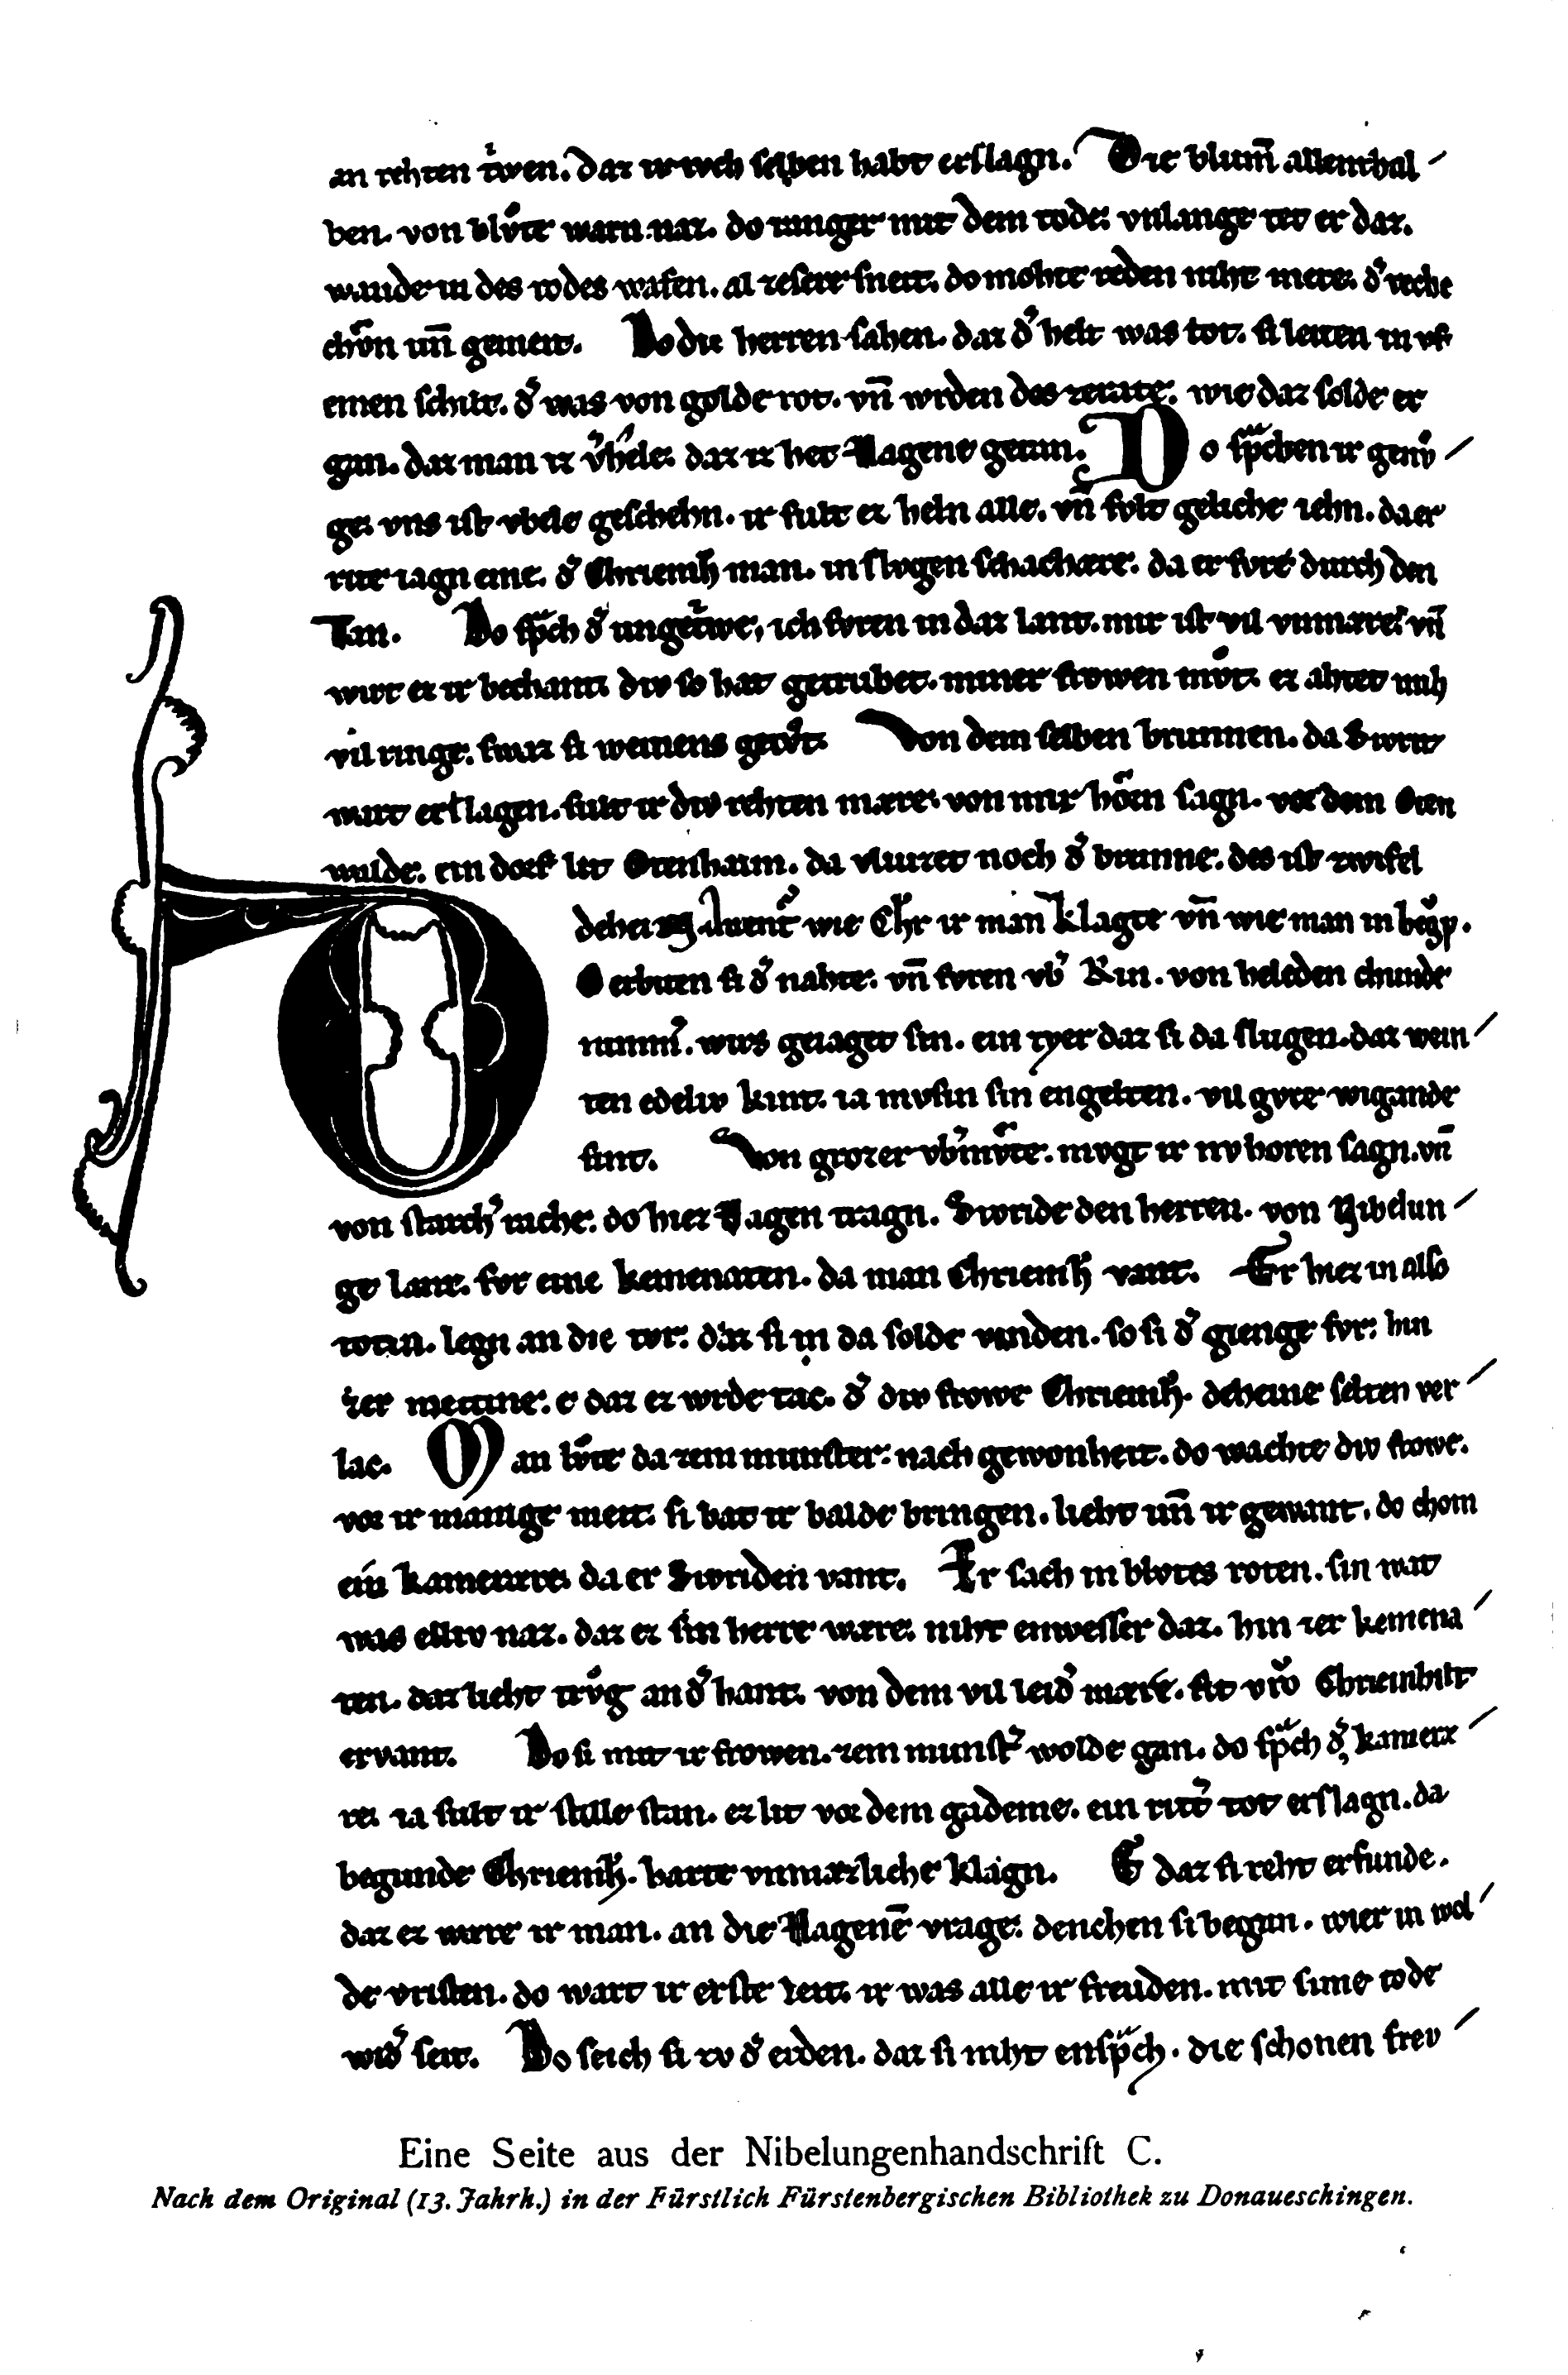 an rehten tⁱwen. daz ir iuch selben habt erslagn. Die blum̄ allenthal
ben. von blůte warn naz. do ranger mit dem tode. vnlange tet er daz.
wande in des todes wafen. al zesere sneit. do mohte reden niht mere. d͛ reche
chůn un̄ gemeit. Do die herren sahen. daz d͛ helt was tot. si leiten in vf
einen schilt. d͛ was von golde rot. vn̄ wrden des zerate. wie daz solde er
gan. daz man iz v͛hele. daz iz het Hagene getan. Do sp̄chen ir genů
ge. vns ist vbele geschehn. ir sult ez heln alle. vn̄ svlt geliche iehn. da er
rite iagn eine. d͛ Chriemh̄ man. in slvgen schachære. da er fvre durch den
Tan. Do sp̄ch d͛ ungetⁱwe, ich fvren in daz lant. mir ist vil vnmære. vn̄
wirt ez ir bechant. div so hat getrubet. miner frowen můt. ez ahtet mih
vil ringe. swaz si weinens getůt. Von dem selben brunnen. da Sivrit
wart erslagen. sult ir div rehten mære. von mir hören sagn. vor dem Oten
walde. ein dorf lit Otenhaim. da vliuzet noch d͛ brunne. des ist zwifel
dehei Auent͛ wie Chr ir man klagte vn̄ wie man in beg͛p.
Do erbiten si d͛ nahte. vn̄ fvren vb͛ Rin. von heleden chunde
nimm͛. wirs geiaget sin. ein tyer daz si da slugen. daz wein
ten edeliv kint. ia mvsin sin engelten. vil gvte wigande
sint. Von grozer vb͛můte. mvgt ir nv horen sagn. vn̄
von starch͛ rache. do hiez Hagen tragn. Sivride den herren. von Nibelun
ge lant. fvr eine kemenaten. da man Chriemh̄ vant. Er hiez in also
toten. legn an die tvr. daz si in da solde vinden. so si d͛ gienge fvr. hin
zer mettine. e daz ez wrde tac. d͛ div frowe Chriemh̄. deheine selten ver
lac. Man lůte da zem munster. nach gewonheit. do wachte div frowe.
vor ir manige meit. si bat ir balde bringen. lieht un̄ ir gewant. do chom
ein kamerære. da er Sivriden vant. Er sach in blvtes roten. sin wat
was elliv naz. daz ez sin herre wære. niht enwesser daz. hin zer kemena
ten. daz lieht trůg an d͛ hant. von dem vil leid͛ mære. sit vrŏ Chriemhilt
ervant. Do si mit ir frowen. zem munst͛ wolde gan. do sp̄ch d͛ kameræ
re. ia sult ir stille stan. ez lit vor dem gademe. ein ritt͛ tot erslagn. da
begunde Chriemh̄. harte vnmæzliche klagn. E daz si reht erfunde.
daz ez wære ir man. an die Hagenē vrage. denchen si began. wier in wol
de vristen. do wart ir erste leit. ir was alle ir freuden. mit sime tode
wid͛ seit. Do seich si zv d͛ erden. daz si niht ensp̄ch. die schonen frev
Eine Seite aus der Nibelungenhandschrift C.
Nach dem Original (13. Jahrh.) in der Fürstlich Fürstenbergischen Bibliothek zu Donaueschingen.